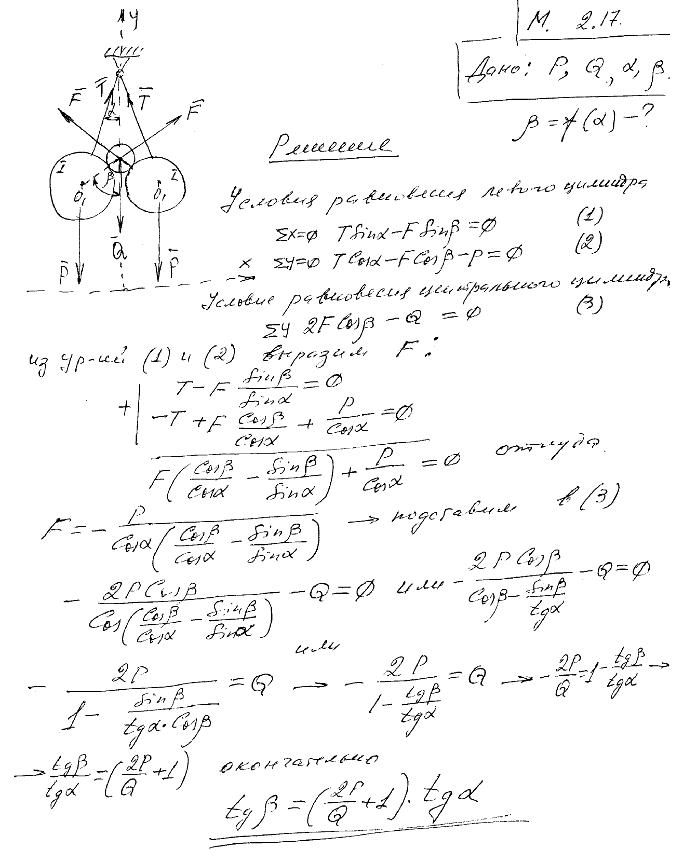 М. 2.17.
Дано: P, Q, α, β.
β = f(α) – ?
y
T̄ T̄
F̄ F̄
α
I I
β
O₁ O₁
Q̄
P̄ P̄
x
Решение
Условия равновесия левого цилиндра
Σx=0 T Sinα – F Sinβ = 0 (1)
Σy=0 T Cosα – F Cosβ – P = 0 (2)
Условие равновесия центрального цилиндра
Σy 2F Cosβ – Q = 0 (3)
из ур-ий (1) и (2) выразим F:
T – F Sinβ/Sinα = 0
+ | –T + F Cosβ/Cosα + P/Cosα = 0
F(Cosβ/Cosα – Sinβ/Sinα) + P/Cosα = 0 откуда
F = – P/(Cosα(Cosβ/Cosα – Sinβ/Sinα)) → подставим в (3)
– 2P Cosβ/(Cos(Cosβ/Cosα – Sinβ/Sinα)) – Q = 0 или – 2P Cosβ/(Cosβ – Sinβ/tgα) – Q = 0
или
– 2P/(1 – Sinβ/(tgα·Cosβ)) = Q → – 2P/(1 – tgβ/tgα) = Q → – 2P/Q = 1 – tgβ/tgα →
→ tgβ/tgα = (2P/Q + 1) окончательно
tgβ = (2P/Q + 1)·tgα